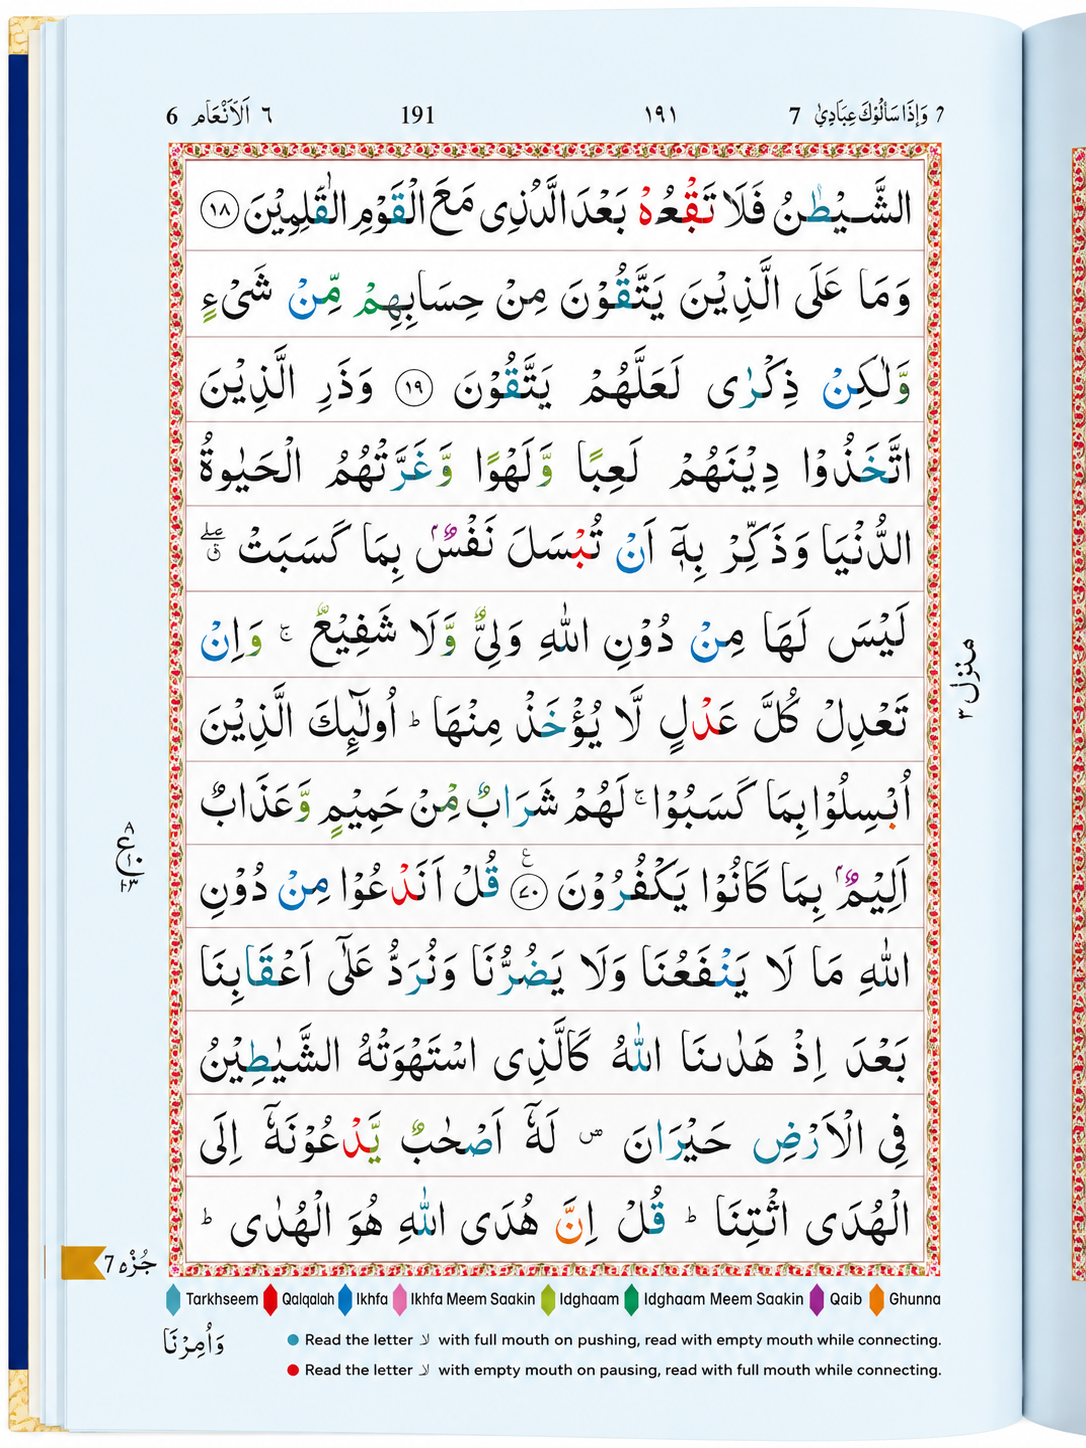 6 اَلْاَنْعَام ٦ 191 ١٩١ 7 وَاِذَا سَاَلُوْكَ عِبَادِيْ ٢
الشَّيْطٰنُ فَلَا تَقْعُدْ بَعْدَ الَّذِى مَعَ الْقَوْمِ ١٨
وَمَا عَلَى الَّذِيْنَ يَتَّقُوْنَ مِنْ حِسَابِهِمْ مِّنْ شَىْءٍ
وَّلٰكِنْ ذِكْرٰى لَعَلَّهُمْ يَتَّقُوْنَ ١٩ وَذَرِ الَّذِيْنَ
اتَّخَذُوْا دِيْنَهُمْ لَعِبًا وَّلَهْوًا وَّغَرَّتْهُمُ الْحَيٰوةُ
الدُّنْيَا وَذَكِّرْ بِهٖٓ اَنْ تُبْسَلَ نَفْسٌۢ بِمَا كَسَبَتْ
لَيْسَ لَهَا مِنْ دُوْنِ اللّٰهِ وَلِىٌّ وَّلَا شَفِيْعٌ ۚ وَاِنْ
تَعْدِلْ كُلَّ عَدْلٍ لَّا يُؤْخَذْ مِنْهَا ؕ اُولٰٓئِكَ الَّذِيْنَ
اُبْسِلُوْا بِمَا كَسَبُوْا ۚ لَهُمْ شَرَابٌ مِّنْ حَمِيْمٍ وَّعَذَابٌ
اَلِيْمٌۢ بِمَا كَانُوْا يَكْفُرُوْنَ ٧٠ قُلْ اَنَدْعُوْا مِنْ دُوْنِ
اللّٰهِ مَا لَا يَنْفَعُنَا وَلَا يَضُرُّنَا وَنُرَدُّ عَلٰٓى اَعْقَابِنَا
بَعْدَ اِذْ هَدٰىنَا اللّٰهُ كَالَّذِى اسْتَهْوَتْهُ الشَّيٰطِيْنُ
فِى الْاَرْضِ حَيْرَانَ ۪ لَهٗٓ اَصْحٰبٌ يَّدْعُوْنَهٗٓ اِلَى
الْهُدَى ائْتِنَا ؕ قُلْ اِنَّ هُدَى اللّٰهِ هُوَ الْهُدٰى ؕ
منزل ٢
٨
ع
١٠
١٣
جُزْه 7
Tarkhseem Qalqalah Ikhfa Ikhfa Meem Saakin Idghaam Idghaam Meem Saakin Qaib Ghunna
وَاُمِرْنَا
Read the letter لا with full mouth on pushing, read with empty mouth while connecting.
Read the letter لا with empty mouth on pausing, read with full mouth while connecting.